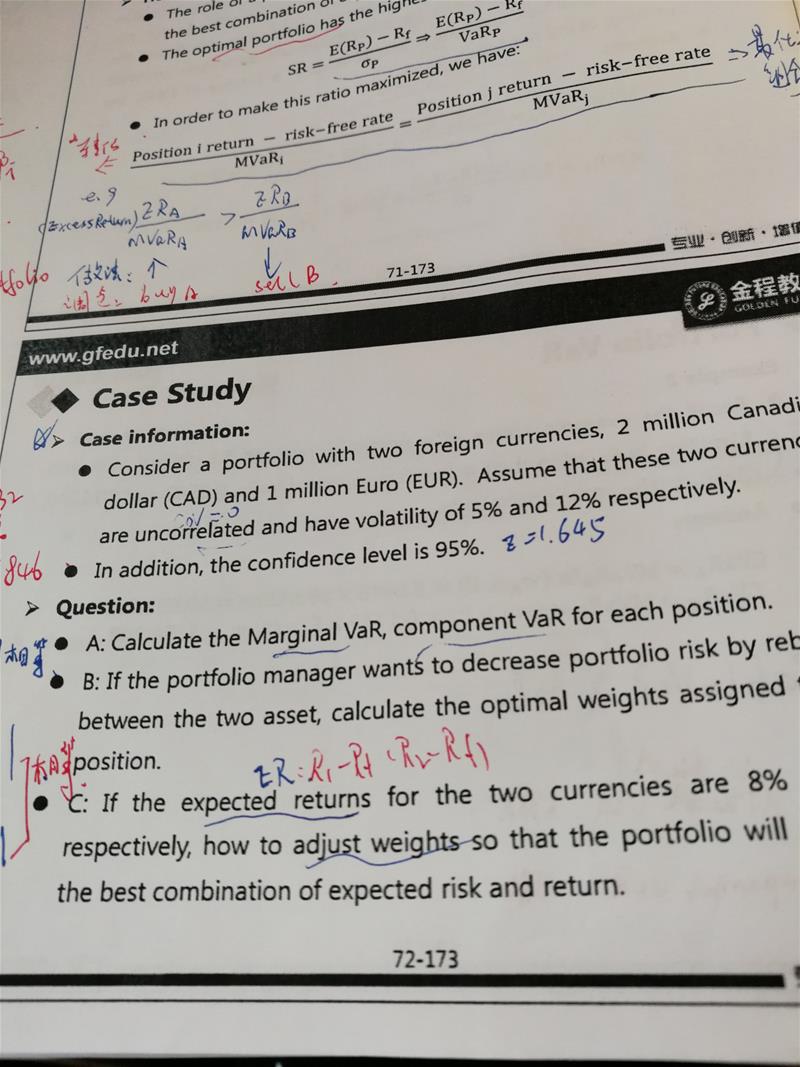 ● The role of a
the best combination of
● The optimal portfolio has the highe
SR = E(RP) − Rf / σP ⇒ E(RP) − Rf / VaRP
● In order to make this ratio maximized, we have:
Position i return − risk−free rate / MVaRi = Position j return − risk−free rate / MVaRj ⇒
e.g
(ExcessReturn) ERA / MVaRA > ERB / MVaRB
做法: ↑ ↓
buy A sell B.
folio
71-173
专业 · 创新 · 增值
金程教
GOLDEN FU
www.gfedu.net
Case Study
➢ Case information:
● Consider a portfolio with two foreign currencies, 2 million Canadi
dollar (CAD) and 1 million Euro (EUR). Assume that these two currenc
are uncorrelated and have volatility of 5% and 12% respectively.
● In addition, the confidence level is 95%. z=1.645
846
➢ Question:
● A: Calculate the Marginal VaR, component VaR for each position.
● B: If the portfolio manager wants to decrease portfolio risk by reb
between the two asset, calculate the optimal weights assigned t
position.
ER: R1−Rf (R2−Rf)
● C: If the expected returns for the two currencies are 8%
respectively, how to adjust weights so that the portfolio will
the best combination of expected risk and return.
72-173